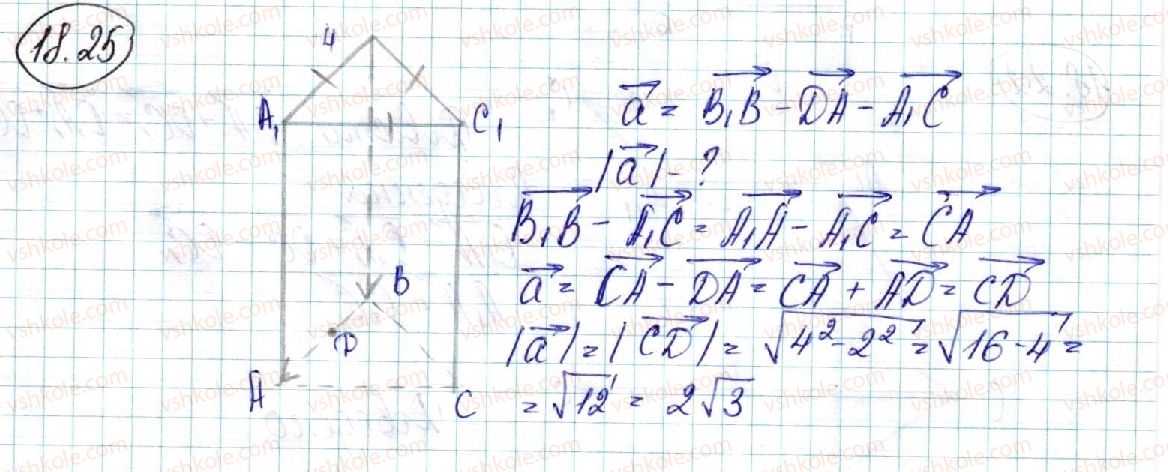 18.25
4
A₁ C₁
B
D
A C
a⃗ = B₁B⃗ - DA⃗ - A₁C⃗
|a⃗| - ?
B₁B⃗ - A₁C⃗ = A₁A⃗ - A₁C⃗ = CA⃗
a⃗ = CA⃗ - DA⃗ = CA⃗ + AD⃗ = CD⃗
|a⃗| = |CD⃗| = √(4² - 2²) = √(16 - 4) =
= √12 = 2√3
vshkole.com